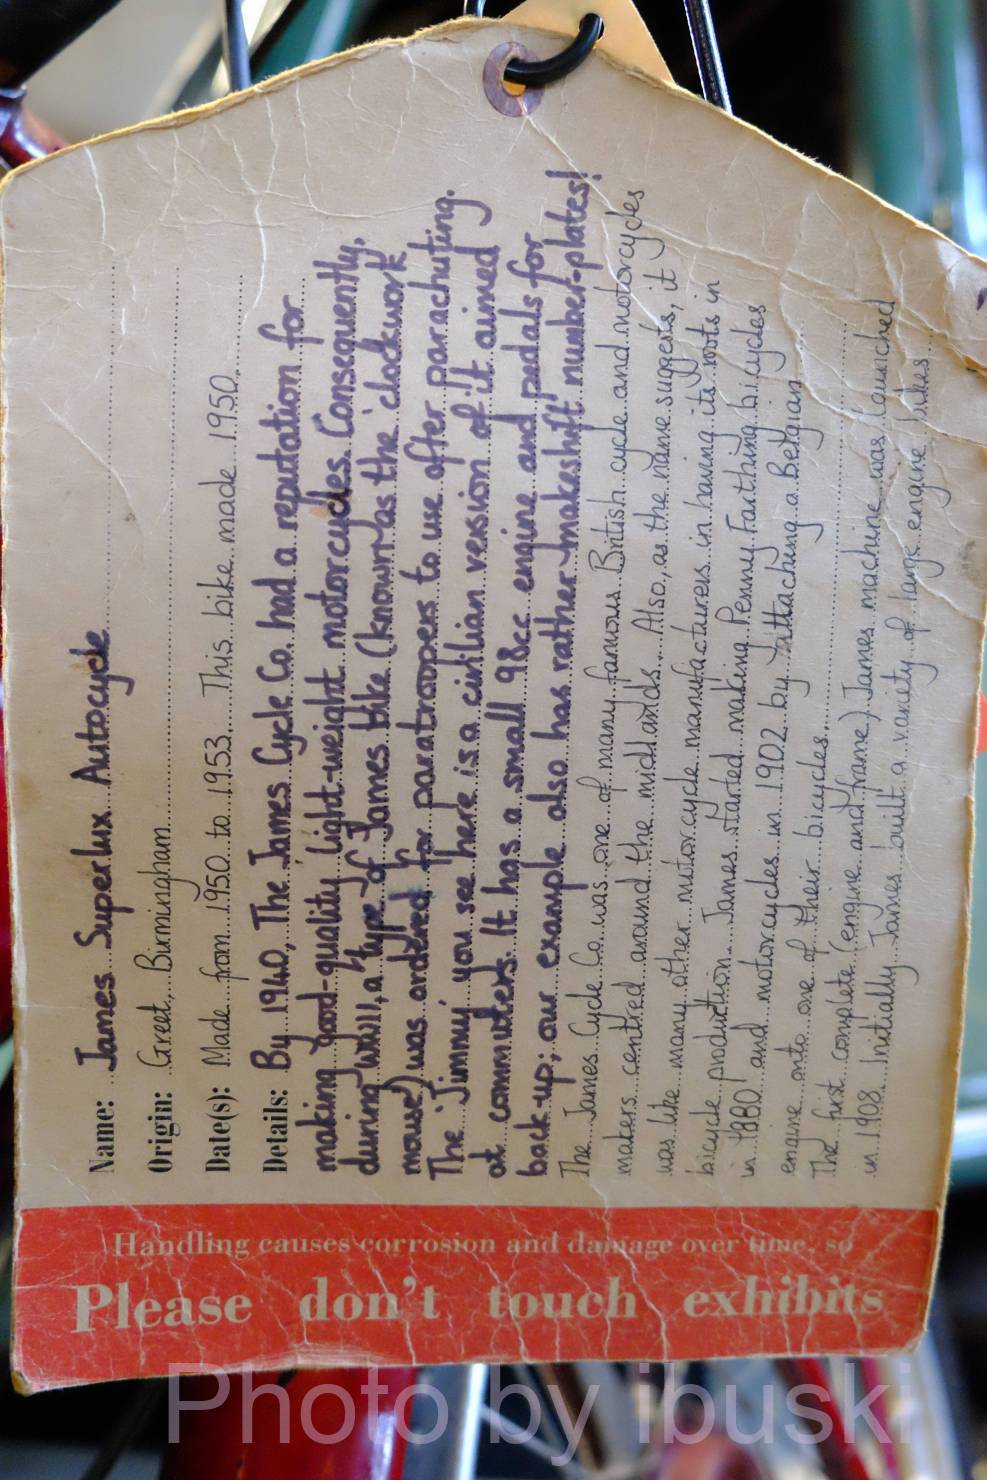 Name: James Superlux Autocycle
Origin: Greet, Birmingham
Date(s): Made from 1950 to 1953. This bike made 1950.
Details: By 1940, The James Cycle Co. had a reputation for
making good-quality light-weight motorcycles. Consequently,
during WWII, a type of James bike (known as the 'clockwork
mouse') was ordered for paratroopers to use after parachuting.
The 'Jimmy' you see here is a civilian version of it aimed
at commuters. It has a small 98cc engine and pedals for
back-up; our example also has rather makeshift number-plates!
The James Cycle Co. was one of many famous British cycle and motorcycles
makers centred around the midlands. Also, as the name suggests, it
was like many other motorcycle manufacturers in having its roots in
bicycle production. James started making Penny Farthing bicycles
in 1880 and motorcycles in 1902 by attaching a Belgian
engine onto one of their bicycles.
The first complete (engine and frame) James machine was launched
in 1908. Initially James built a variety of large engine bikes
Handling causes corrosion and damage over time, so
Please don't touch exhibits
Photo by ibuski